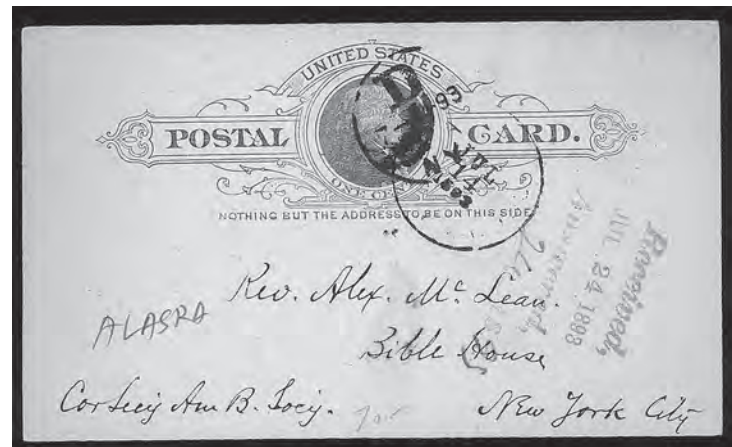 UNITED STATES
POSTAL CARD.
ONE CENT
NOTHING BUT THE ADDRESS TO BE ON THIS SIDE
Received,
JUL 24 1893
Answered,
Rev. Alex. Mc Lean.
ALASRA
Bible House
Cor Secy Am B. Socy.
New York City